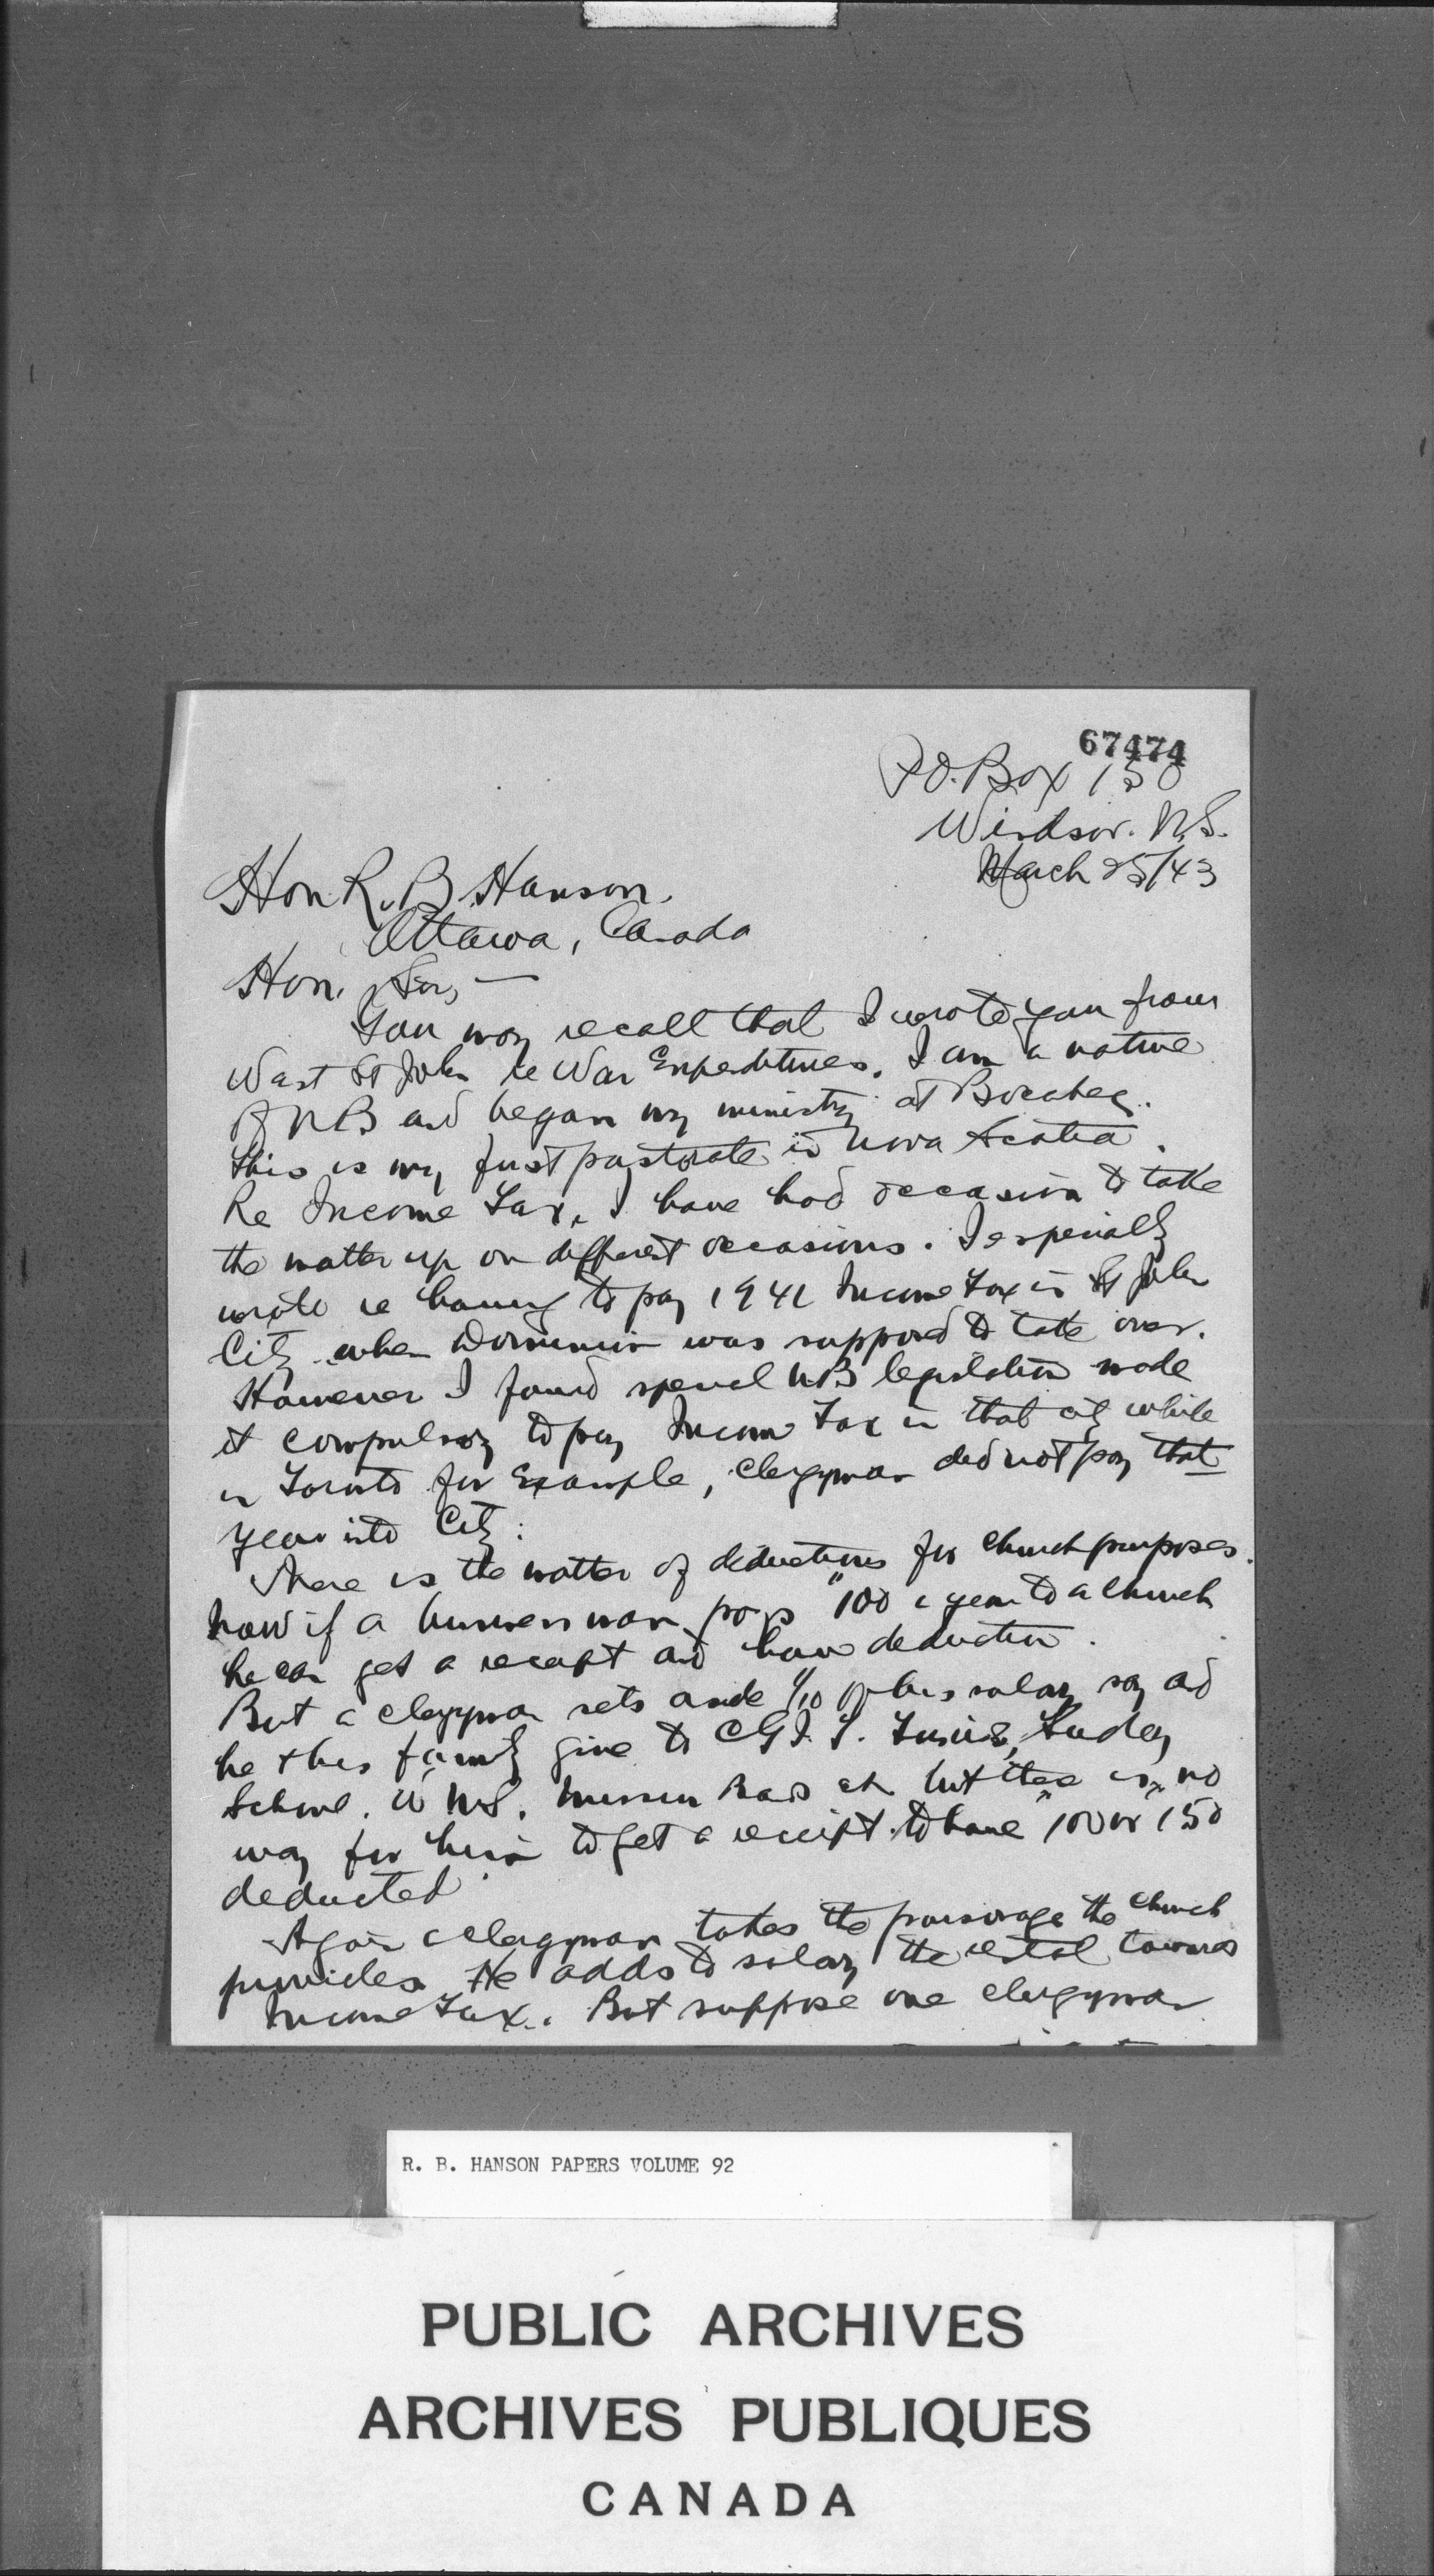 67474
P.O. Box 150
Windsor. N.S.
March 25/43
Hon R. B. Hanson.
Ottawa, Canada
Hon. Sir, —
You may recall that I wrote you from
West St John re War Expenditures. I am a native
of N B and began my ministry at Bocabec.
This is my first pastorate in Nova Scotia.
Re Income Tax, I have had occasion to take
the matter up on different occasions. I especially
wrote re having to pay 1941 Income Tax in St John
City when Dominion was supposed to take over.
However I found special N B legislation made
it compulsory to pay Income Tax in that city while
in Toronto for Example, clergyman did not pay that
year into City.
There is the matter of deductions for church purposes.
Now if a business man pays "100 a year to a church
he can get a receipt and have deduction.
But a clergyman sets aside 1/10 of his salary say and
he & his family give to C G I T. Tuxis, Sunday
School, W M S. Mission Band etc but there is no
way for him to get a receipt to have "100 or "150
deducted.
Again a clergyman takes the parsonage the church
provides. He adds to salary the rental towards
Income Tax. But suppose one clergyman
R. B. HANSON PAPERS VOLUME 92
PUBLIC ARCHIVES
ARCHIVES PUBLIQUES
CANADA